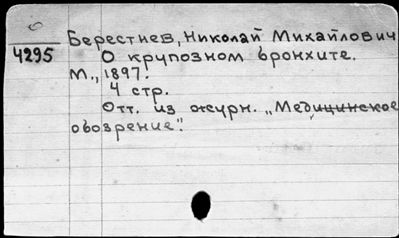 Берестнев, Николай Михайлович
4295
О крупозном бронхите.
М., 1897.
4 стр.
Отт. из журн. „Медицинское
обозрение".